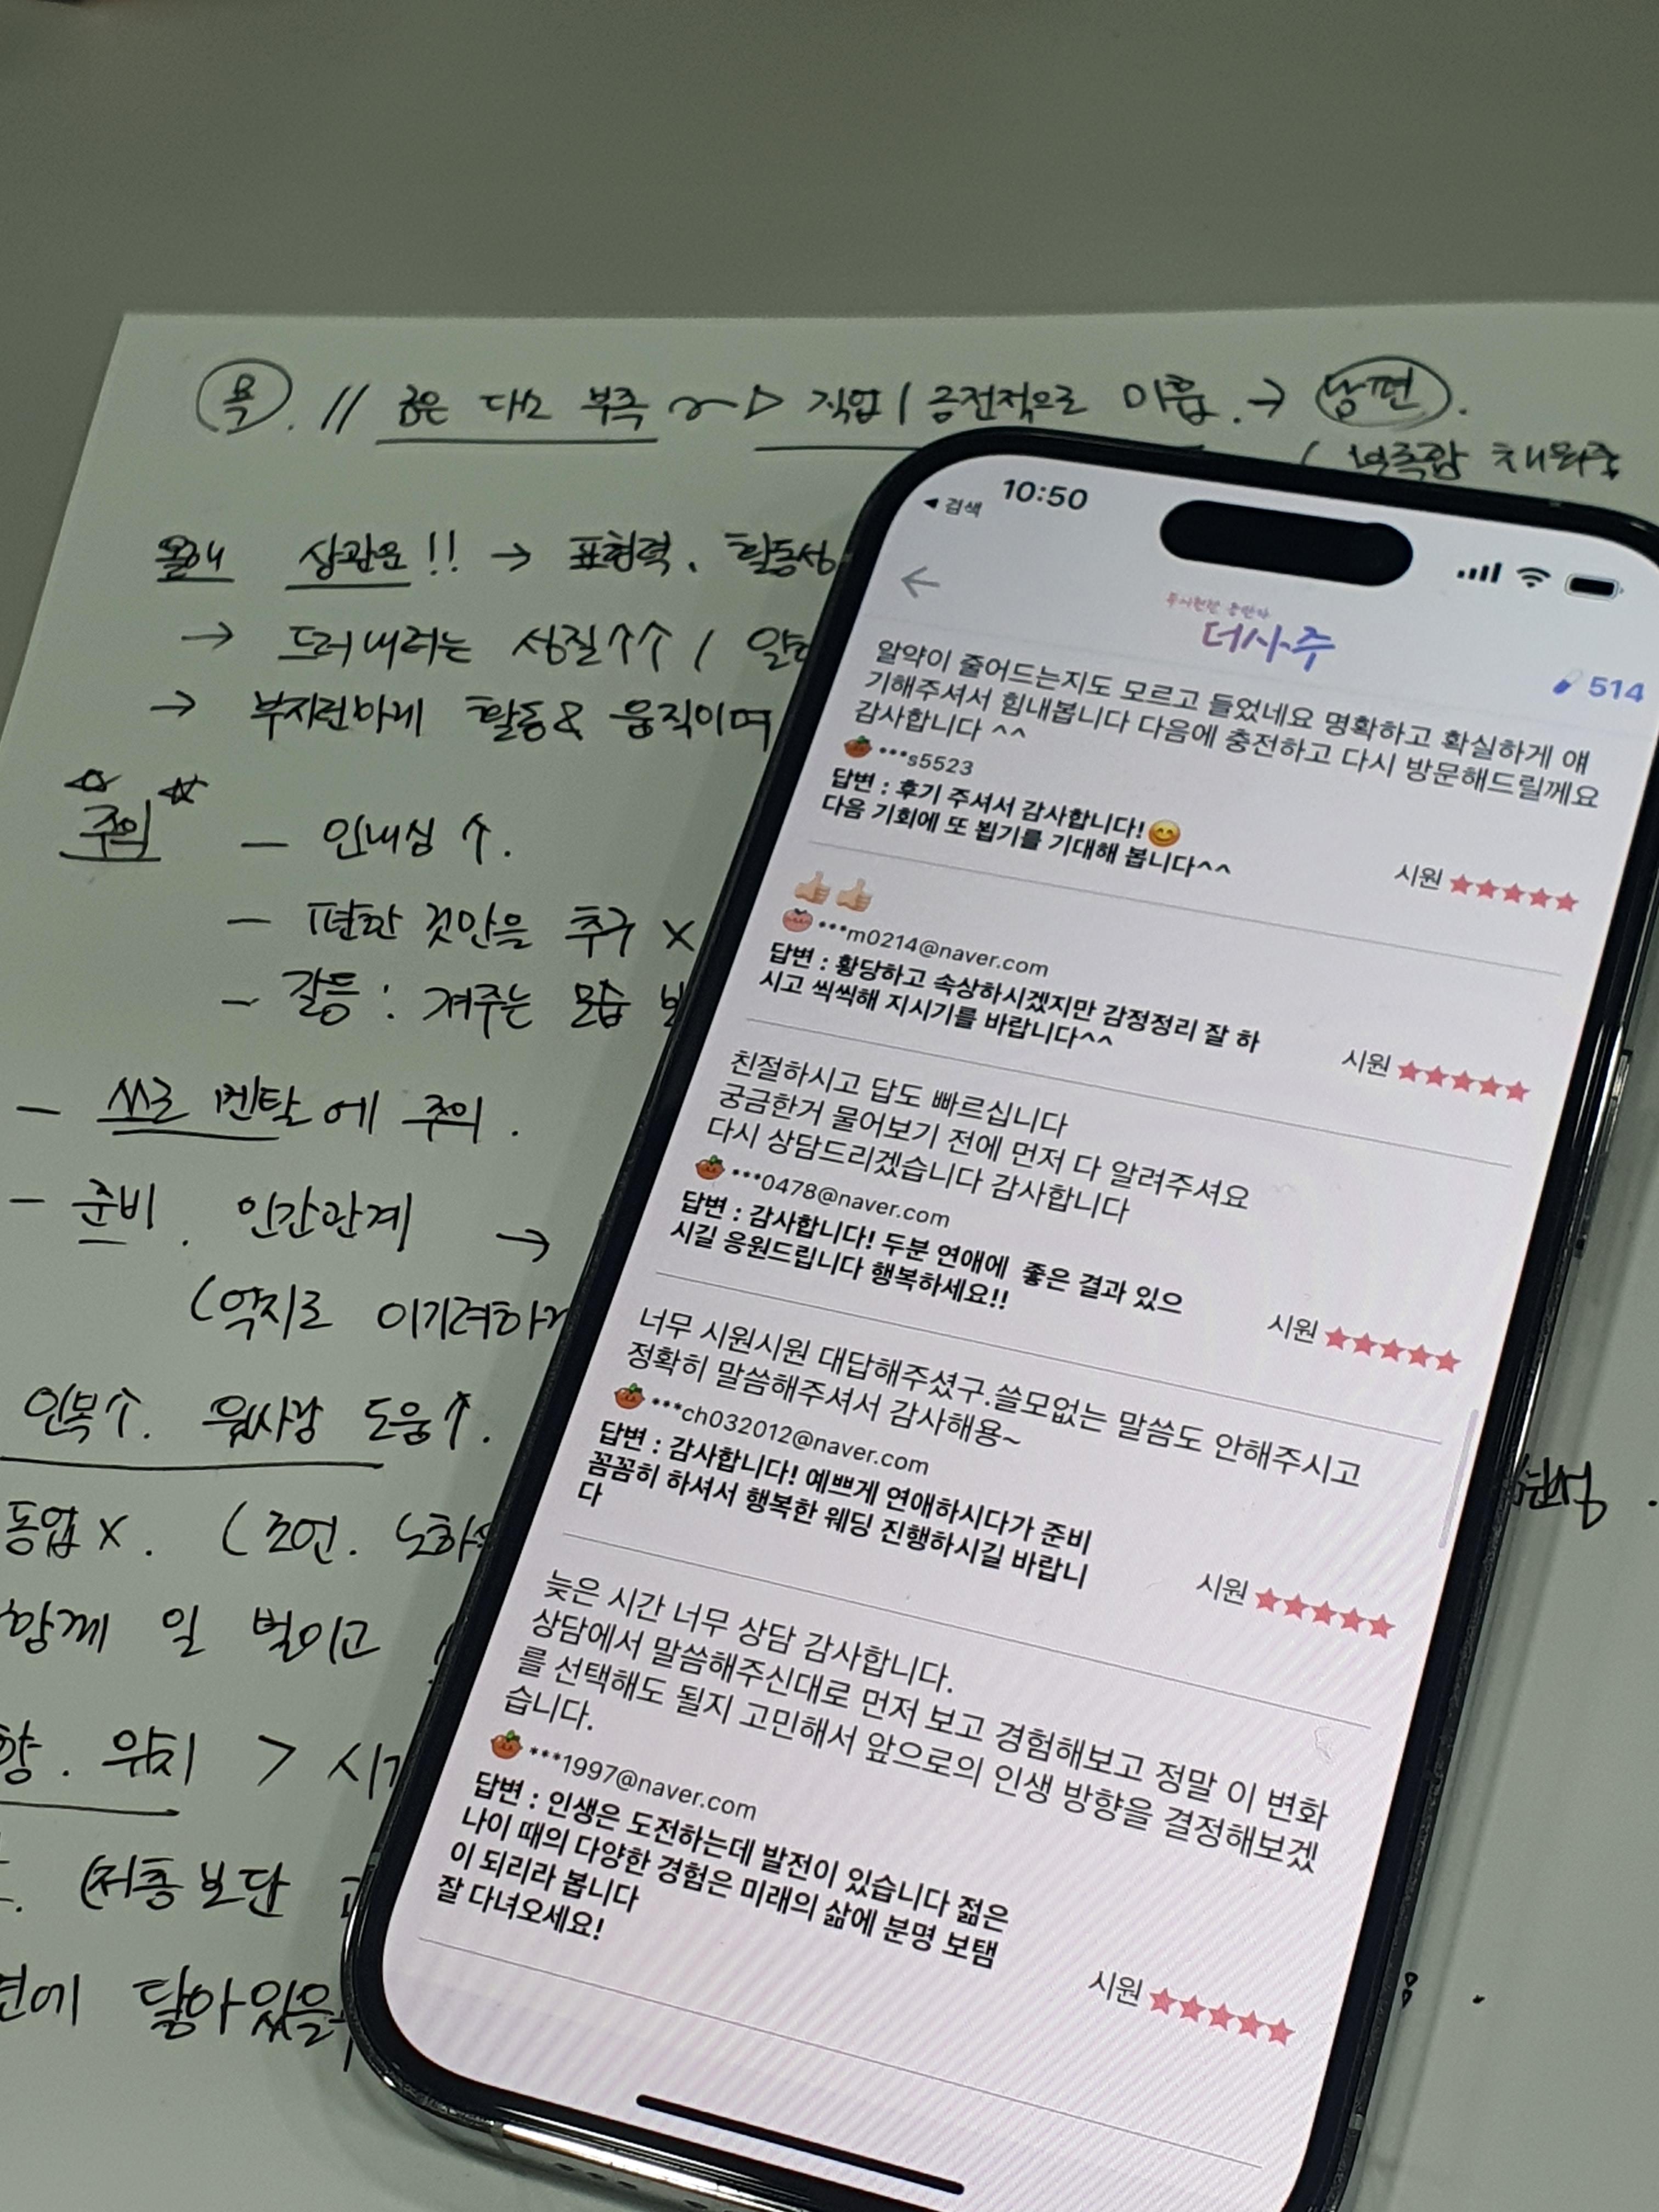 목. // 금은 다소 부족 ~> 직업 / 금전적으로 미흡. → 남편.
(부족함 채워줌
올해 상관운!! → 표현력. 활동성
→ 드러내려는 성질↑↑ /
→ 부지런하게 활동& 움직이며
☆주의☆ - 인내심 ↑.
- 편한 것만을 추구 X
- 갈등 : 져주는 모습
- 쓰로 멘탈에 주의.
- 준비. 인간관계 →
(억지로 이기려하
인복↑. 윗사람 도움↑.
동업 X. (조언.
함께 일 벌이고
향. 위치 > 시
(저층보단
면에 닿아있을
◀ 검색
10:50
←
무서원한 동반자
더사주
514
알약이 줄어드는지도 모르고 들었네요 명확하고 확실하게 얘
기해주셔서 힘내봅니다 다음에 충전하고 다시 방문해드릴께요
감사합니다 ^^
***s5523
답변 : 후기 주셔서 감사합니다!😊
다음 기회에 또 뵙기를 기대해 봅니다^^
시원 ★★★★★
👍🏻👍🏻
***m0214@naver.com
답변 : 황당하고 속상하시겠지만 감정정리 잘 하
시고 씩씩해 지시기를 바랍니다^^
시원 ★★★★★
친절하시고 답도 빠르십니다
궁금한거 물어보기 전에 먼저 다 알려주셔요
다시 상담드리겠습니다 감사합니다
***0478@naver.com
답변 : 감사합니다! 두분 연애에 좋은 결과 있으
시길 응원드립니다 행복하세요!!
시원 ★★★★★
너무 시원시원 대답해주셨구.쓸모없는 말씀도 안해주시고
정확히 말씀해주셔서 감사해용~
***ch032012@naver.com
답변 : 감사합니다! 예쁘게 연애하시다가 준비
꼼꼼히 하셔서 행복한 웨딩 진행하시길 바랍니
다
시원 ★★★★★
늦은 시간 너무 상담 감사합니다.
상담에서 말씀해주신대로 먼저 보고 경험해보고 정말 이 변화
를 선택해도 될지 고민해서 앞으로의 인생 방향을 결정해보겠
습니다.
***1997@naver.com
답변 : 인생은 도전하는데 발전이 있습니다 젊은
나이 때의 다양한 경험은 미래의 삶에 분명 보탬
이 되리라 봅니다
잘 다녀오세요!
시원 ★★★★★